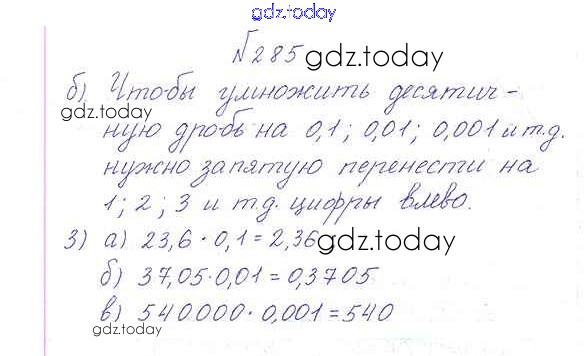 gdz.today
№285 gdz.today
б) Чтобы умножить десятич-
gdz.today
ную дробь на 0,1; 0,01; 0,001 и т.д.
нужно запятую перенести на
1; 2; 3 и т.д. цифры влево.
3) а) 23,6 · 0,1 = 2,36
gdz.today
б) 37,05 · 0,01 = 0,3705
в) 540000 · 0,001 = 540
gdz.today